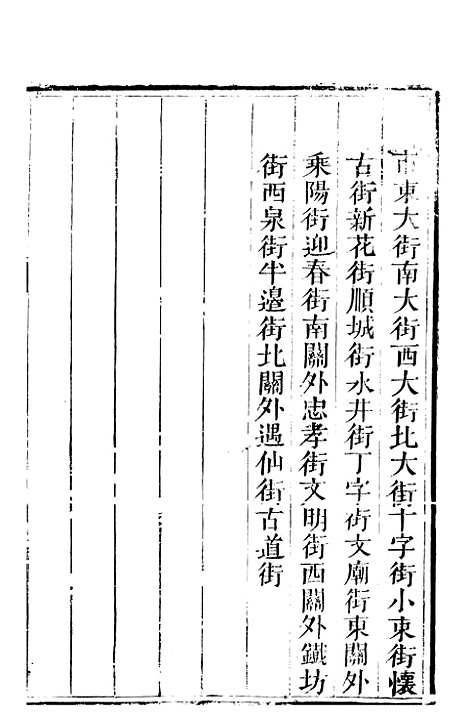 市東大街南大街西大街北大街十字街小東街懷
古街新花街順城街水井街丁字街文廟街東關外
乘陽街迎春街南關外忠孝街文明街西關外鐵坊
街西泉街半邊街北關外遇仙街古道街